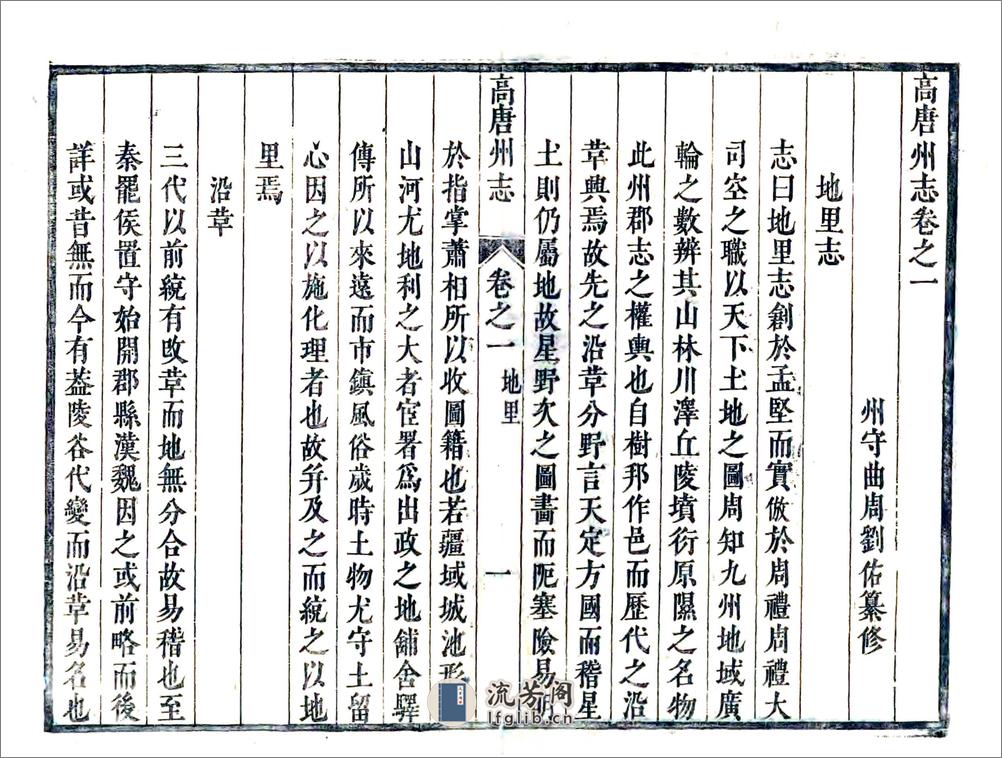 高唐州志卷之一
州守曲周劉佑纂修
地里志
志曰地里志創於孟堅而實倣於周禮周禮大
司空之職以天下土地之圖周知九州地域廣
輪之數辨其山林川澤丘陵墳衍原隰之名物
此州郡志之權輿也自樹邦作邑而歷代之沿
革興焉故先之沿革分野言天定方國而稽星
土則仍屬地故星野次之圖畵而阨塞險易明
高唐州志
卷之一 地里
一
於指掌蕭相所以收圖籍也若疆域城池形
山河尤地利之大者宦署爲出政之地舖舍驛
傳所以來遠而市鎮風俗歲時土物尤守土留
心因之以施化理者也故幷及之而統之以地
里焉
沿革
三代以前統有改革而地無分合故易稽也至
秦罷侯置守始開郡縣漢魏因之或前略而後
詳或昔無而今有葢陵谷代變而沿革易名也
流芳阁
lfglib.cn